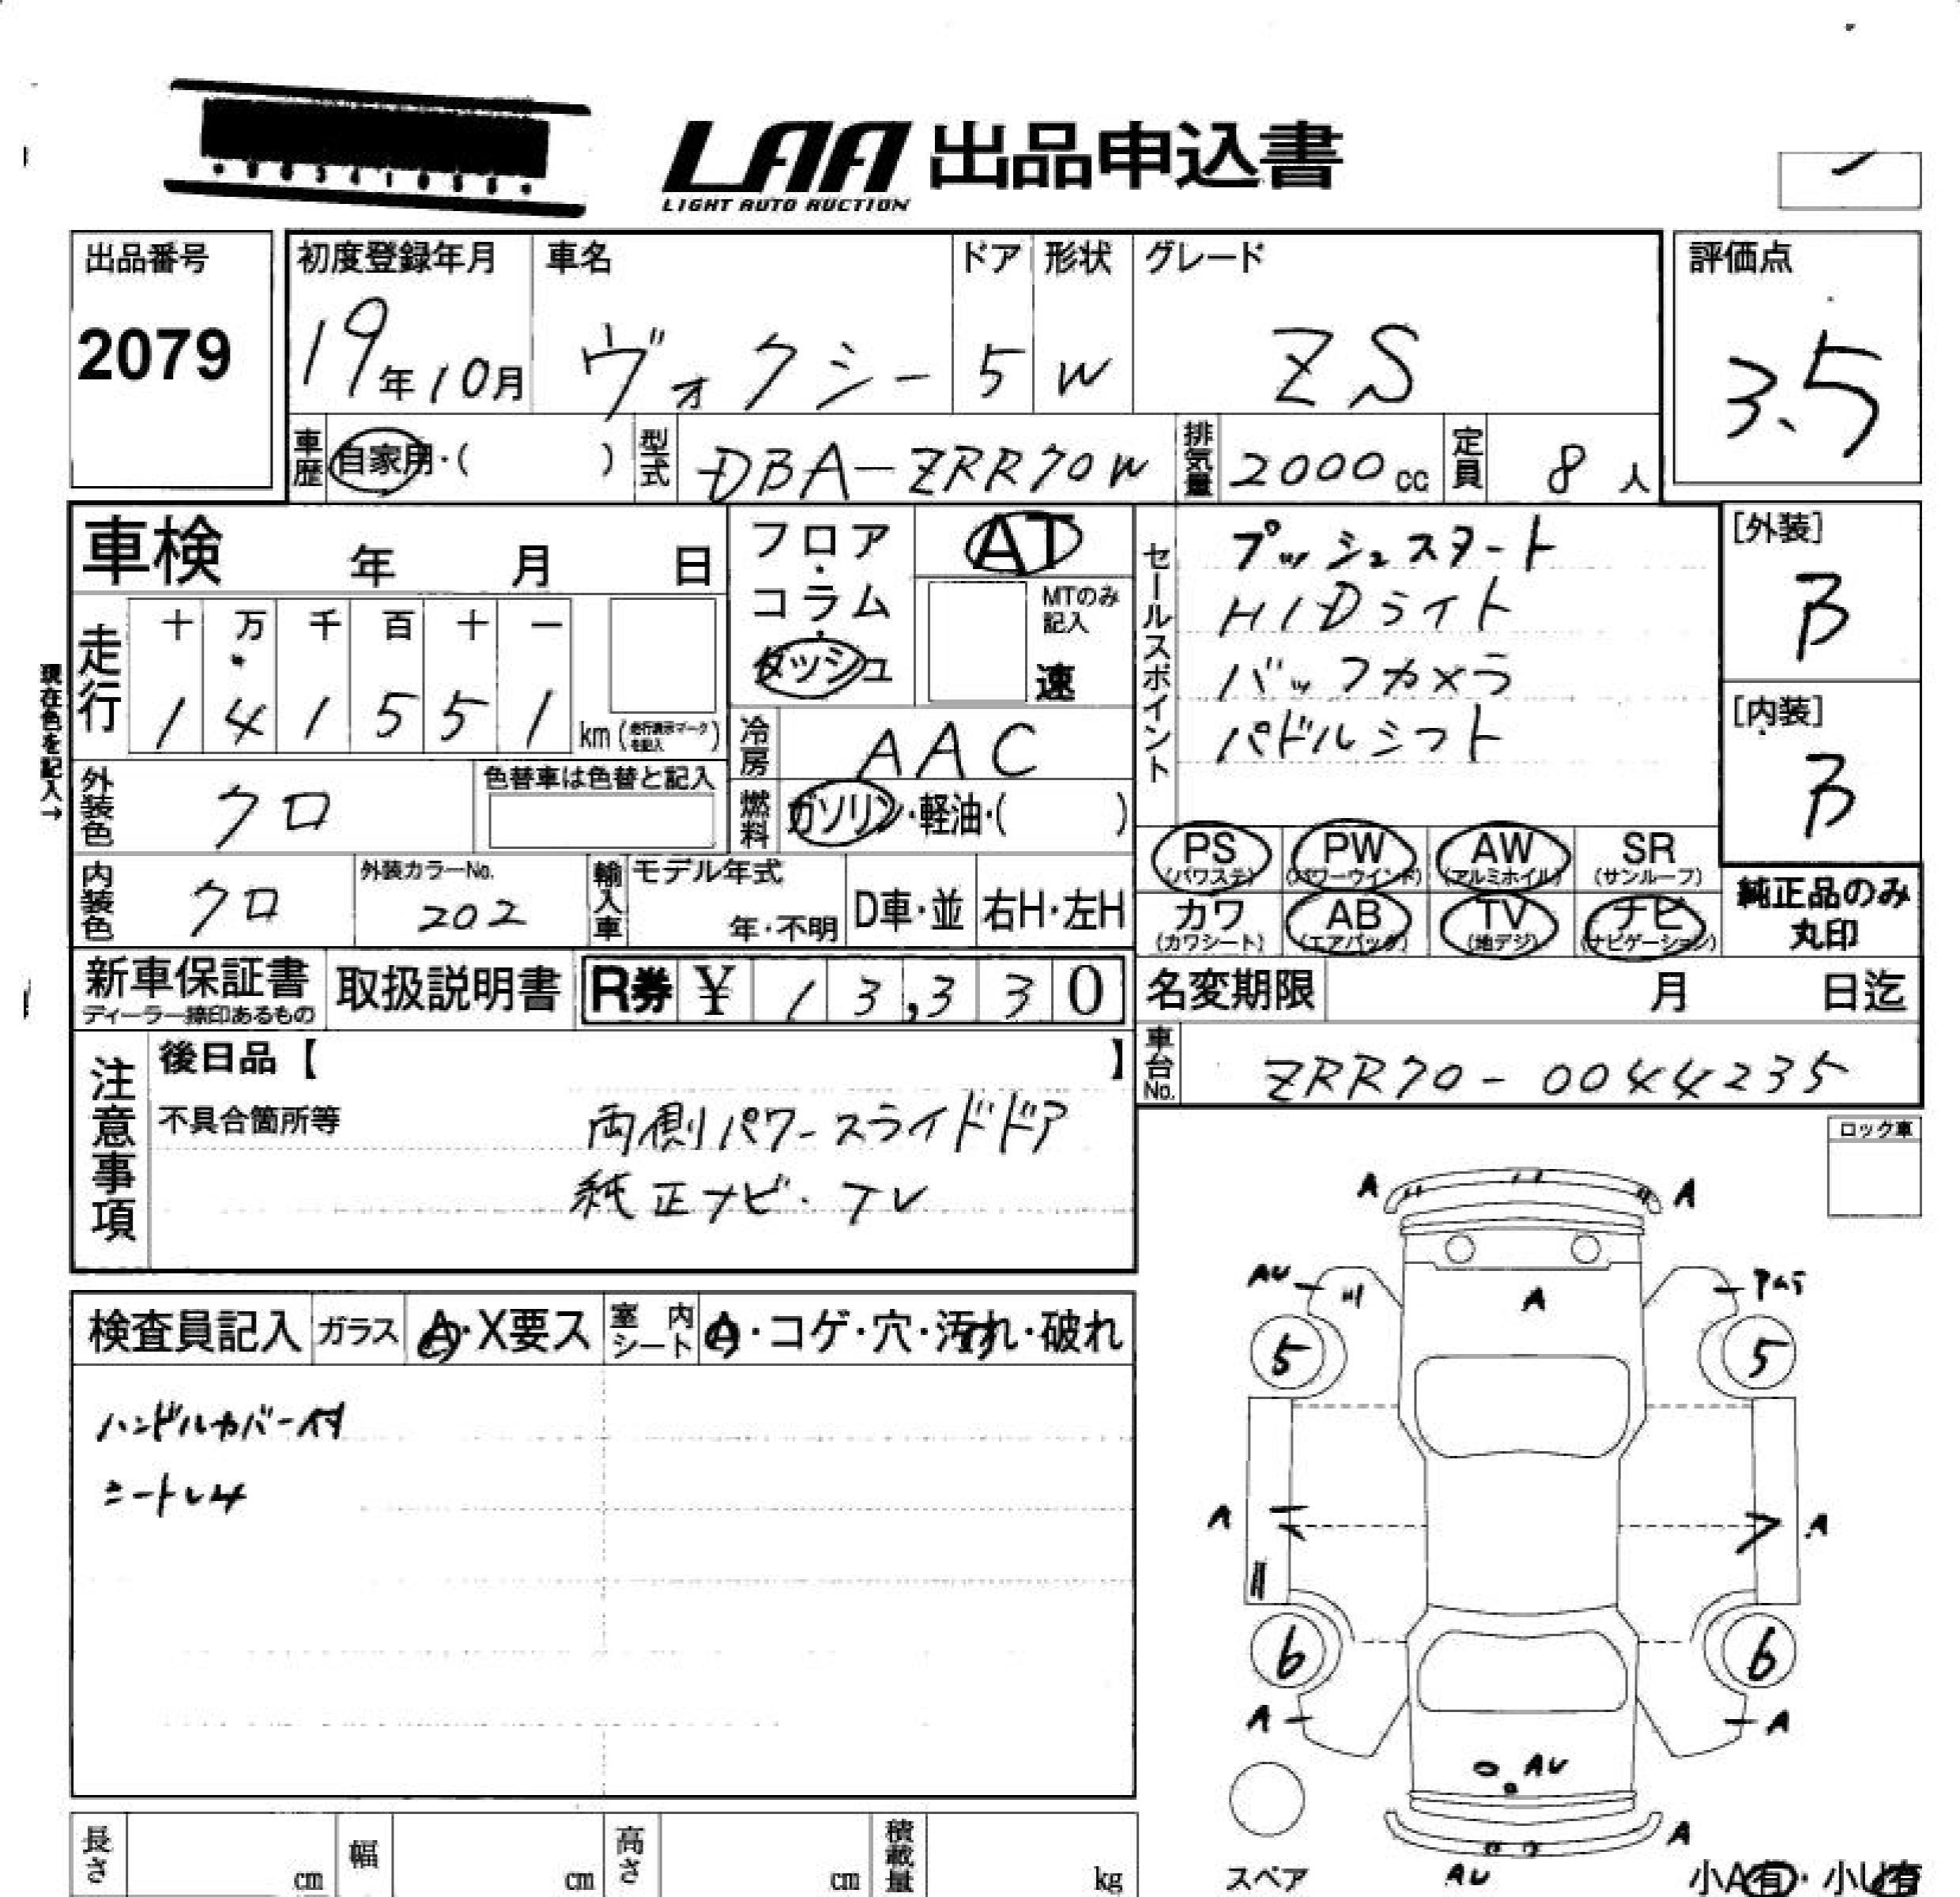 LAA 出品申込書
LIGHT AUTO AUCTION
出品番号
2079
初度登録年月
19年10月
車名
ヴォクシー
ドア
5
形状
W
グレード
ZS
評価点
3.5
車歴
自家用・( )
型式
DBA-ZRR70W
排気量
2000cc
定員
8人
車検 年 月 日
フロア・コラム・ダッシュ
AT
MTのみ記入
速
セールスポイント
プッシュスタート
HIDライト
バックカメラ
パドルシフト
[外装]
B
[内装]
B
現在色を記入→
走行
十 万 千 百 十 一
1 4 1 5 5 1 km (走行表示マークを記入)
冷房
AAC
外装色
クロ
色替車は色替と記入
燃料
ガソリン・軽油・( )
PS (パワステ)
PW (パワーウインド)
AW (アルミホイル)
SR (サンルーフ)
内装色
クロ
外装カラーNo.
202
輸入車
モデル年式
年・不明
D車・並
右H・左H
カワ (カワシート)
AB (エアバック)
TV (地デジ)
ナビ (ナビゲーション)
純正品のみ
丸印
新車保証書
ディーラー捺印あるもの
取扱説明書
R券 ¥ 13,330
名変期限 月 日迄
車台No.
ZRR70-0044235
注意事項
後日品【 】
不具合箇所等
両側パワースライドドア
純正ナビ・TV
ロック車
検査員記入
ガラス
A・X要ス
室内シート
A・コゲ・穴・汚れ・破れ
ハンドルカバー付
A A
AU
A
5 5
A A
6 6
A A
AU
A
AU
スペア
小A有・小U有
長さ cm
幅 cm
高さ cm
積載量 kg